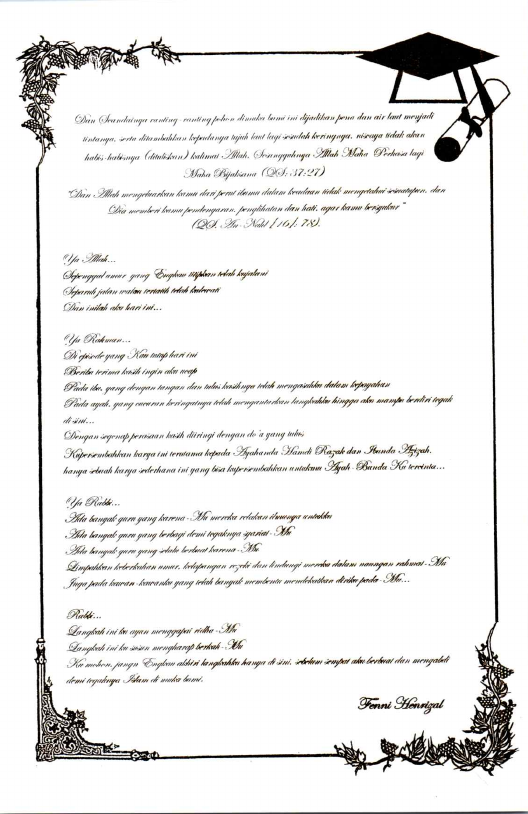 Dan Seandainya ranting-ranting pohon dimuka bumi ini dijadikan pena dan air laut menjadi
tintanya, serta ditambahkan kepadanya tujuh laut lagi sesudah keringnya, niscaya tidak akan
habis-habisnya (dituliskan) kalimat Allah. Sesungguhnya Allah Maha Perkasa lagi
Maha Bijaksana (QS: 37:27)
"Dan Allah mengeluarkan kamu dari perut ibumu dalam keadaan tidak mengetahui sesuatupun, dan
Dia memberi kamu pendengaran, penglihatan dan hati, agar kamu bersyukur"
(QS. An-Nahl [16]: 78).
Ya Allah...
Sepenggal umur yang Engkau titipkan telah kujalani
Separuh jalan walau tertatih telah kulewati
Dan inilah aku hari ini...
Ya Rahman...
Di episode yang Kau tutup hari ini
Beribu terima kasih ingin aku ucap
Pada ibu, yang dengan tangan dan tulus kasihnya telah mengasuhku dalam kepayahan
Pada ayah, yang cucuran keringatnya telah mengantarkan langkahku hingga aku mampu berdiri tegak
di sini...
Dengan segenap perasaan kasih diiringi dengan do'a yang tulus
Kupersembahkan karya ini terutama kepada Ayahanda Hamdi Razak dan Ibunda Azizah,
hanya sebuah karya sederhana ini yang bisa kupersembahkan untukmu Ayah-Bunda Ku tercinta...
Ya Rabbi...
Ada banyak guru yang karena-Mu mereka relakan ilmunya untukku
Ada banyak guru yang berbagi demi tegaknya syariat-Mu
Ada banyak guru yang selalu berbuat karena-Mu
Limpahkan keberkahan umur, kelapangan rezeki dan lindungi mereka dalam naungan rahmat-Mu
Juga pada kawan-kawanku yang telah banyak membantu mendekatkan diriku pada-Mu...
Rabbi...
Langkah ini ku ayun menggapai ridha-Mu
Langkah ini ku susun mengharap berkah-Mu
Ku mohon, jangn Engkau akhiri langkahku hanya di sini, sebelum sempat aku berbuat dan mengabdi
demi tegaknya Islam di muka bumi.
Fenni Henrizal